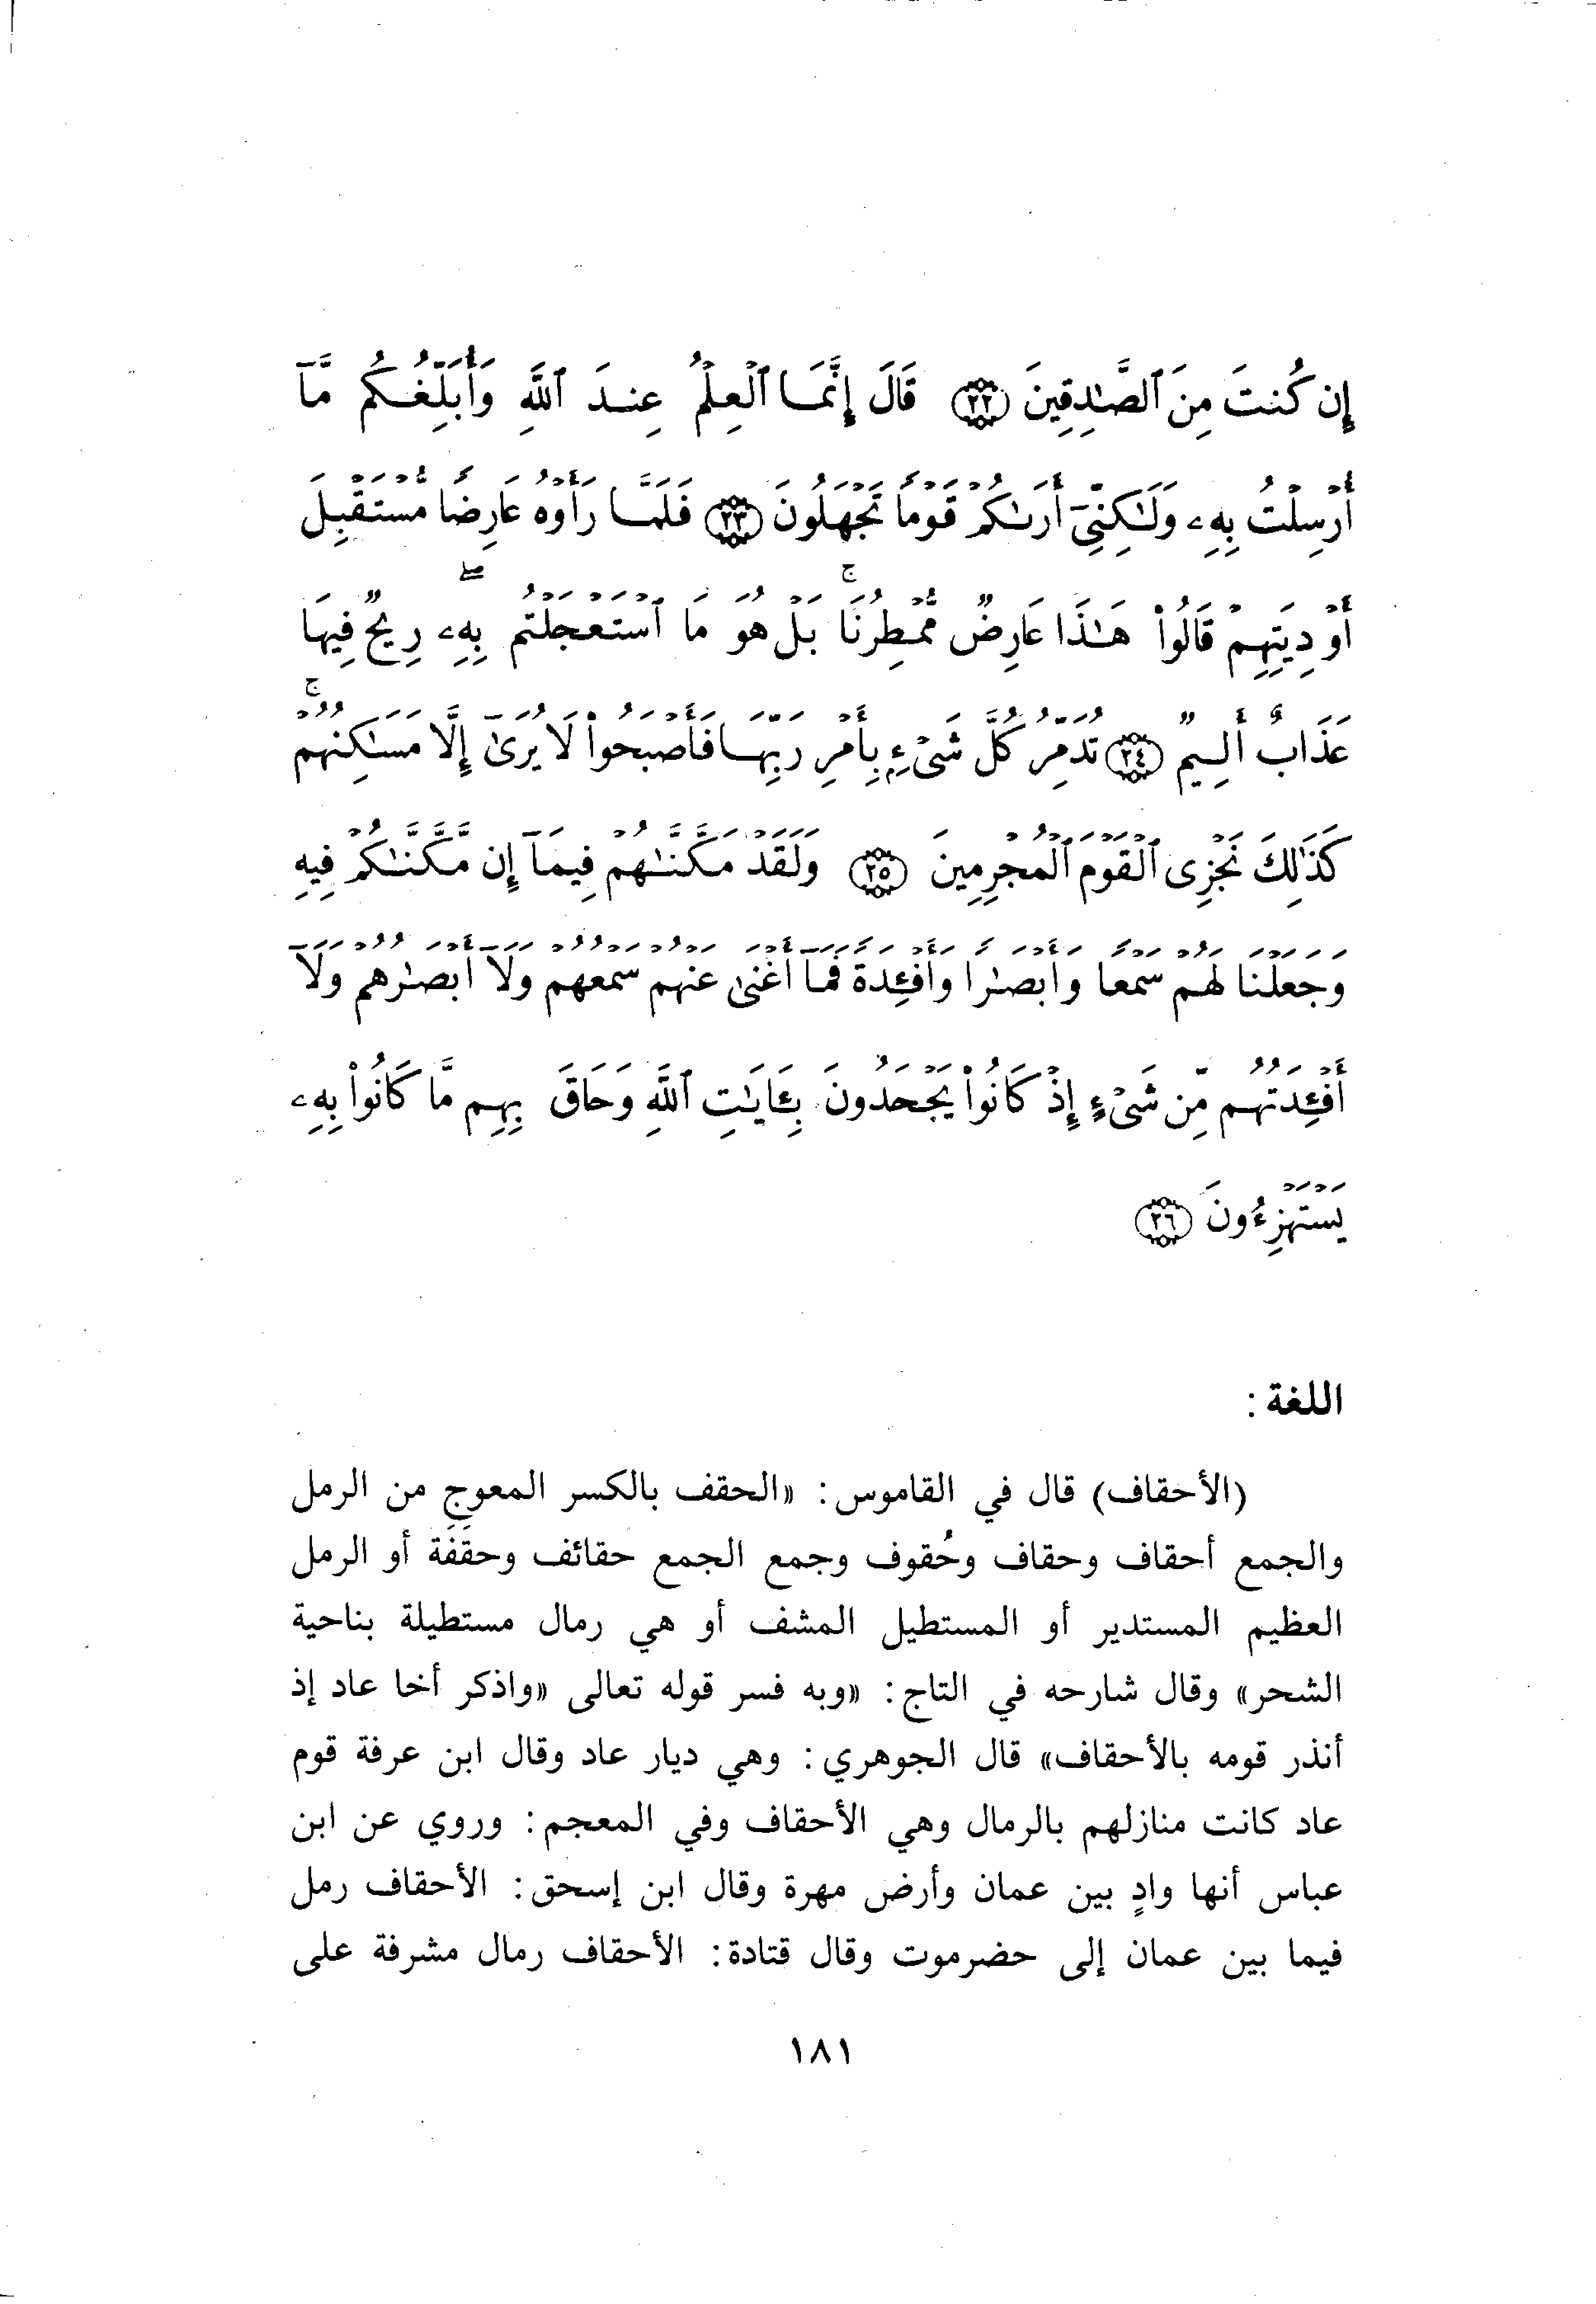 إِن كُنتَ مِنَ ٱلصَّـٰدِقِينَ ﴿٢٢﴾ قَالَ إِنَّمَا ٱلْعِلْمُ عِندَ ٱللَّهِ وَأُبَلِّغُكُم مَّآ
أُرْسِلْتُ بِهِۦ وَلَـٰكِنِّىٓ أَرَىٰكُمْ قَوْمًا تَجْهَلُونَ ﴿٢٣﴾ فَلَمَّا رَأَوْهُ عَارِضًا مُّسْتَقْبِلَ
أَوْدِيَتِهِمْ قَالُوا۟ هَـٰذَا عَارِضٌ مُّمْطِرُنَا ۚ بَلْ هُوَ مَا ٱسْتَعْجَلْتُم بِهِۦ ۖ رِيحٌ فِيهَا
عَذَابٌ أَلِيمٌ ﴿٢٤﴾ تُدَمِّرُ كُلَّ شَىْءٍۭ بِأَمْرِ رَبِّهَا فَأَصْبَحُوا۟ لَا يُرَىٰٓ إِلَّا مَسَـٰكِنُهُمْ ۚ
كَذَٰلِكَ نَجْزِى ٱلْقَوْمَ ٱلْمُجْرِمِينَ ﴿٢٥﴾ وَلَقَدْ مَكَّنَّـٰهُمْ فِيمَآ إِن مَّكَّنَّـٰكُمْ فِيهِ
وَجَعَلْنَا لَهُمْ سَمْعًا وَأَبْصَـٰرًا وَأَفْـِٔدَةً فَمَآ أَغْنَىٰ عَنْهُمْ سَمْعُهُمْ وَلَآ أَبْصَـٰرُهُمْ وَلَآ
أَفْـِٔدَتُهُم مِّن شَىْءٍ إِذْ كَانُوا۟ يَجْحَدُونَ بِـَٔايَـٰتِ ٱللَّهِ وَحَاقَ بِهِم مَّا كَانُوا۟ بِهِۦ
يَسْتَهْزِءُونَ ﴿٢٦﴾
اللغة :
(الأحقاف) قال في القاموس: «الحقف بالكسر المعوج من الرمل
والجمع أحقاف وحقاف وحُقوف وجمع الجمع حقائف وحقَفَة أو الرمل
العظيم المستدير أو المستطيل المشف أو هي رمال مستطيلة بناحية
الشحر» وقال شارحه في التاج: «وبه فسر قوله تعالى «واذكر أخا عاد إذ
أنذر قومه بالأحقاف» قال الجوهري: وهي ديار عاد وقال ابن عرفة قوم
عاد كانت منازلهم بالرمال وهي الأحقاف وفي المعجم: وروي عن ابن
عباس أنها وادٍ بين عمان وأرض مهرة وقال ابن إسحق: الأحقاف رمل
فيما بين عمان إلى حضرموت وقال قتادة: الأحقاف رمال مشرفة على
١٨١